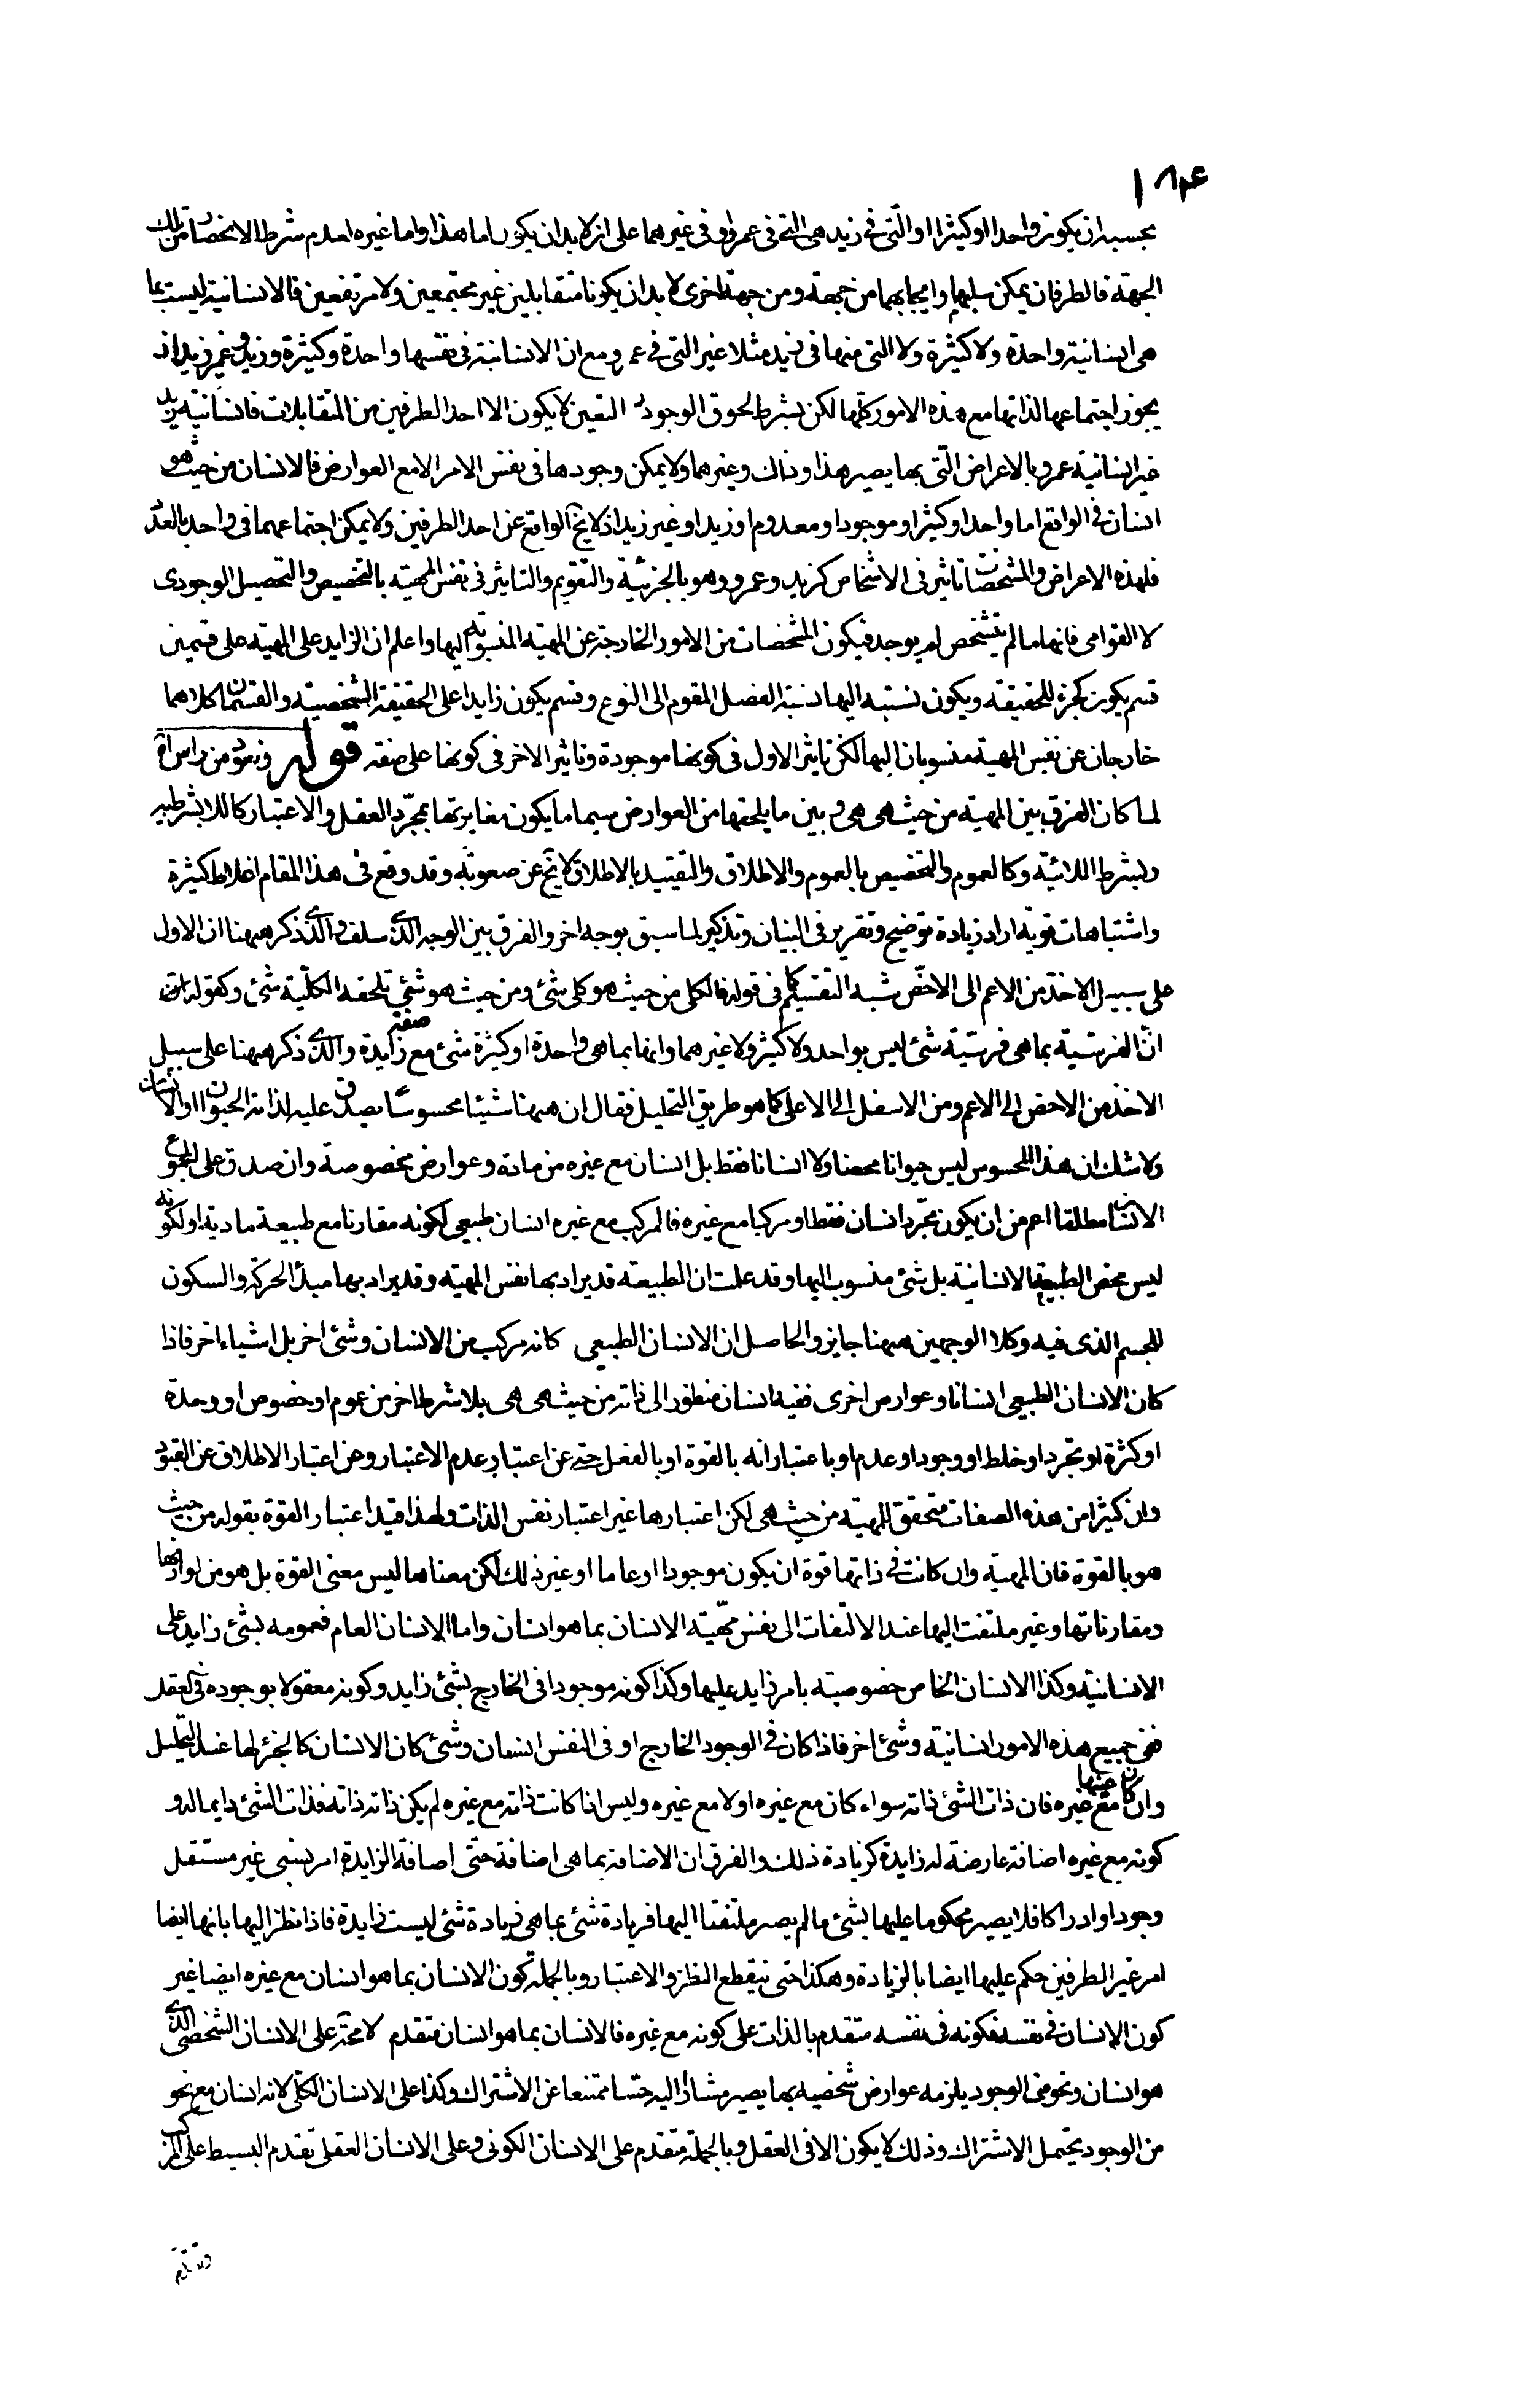 ١٨٣
بحسبه ان يكون واحدا او كثيرا او التى فى زيد هى التى فى عمرو او فى غيرهما على انه لا بد ان يكون اما هذا واما غيره لعدم شرط الانحصار من تلك
الجهة فالطرفان يمكن سلبهما وايجابهما من جهة ومن جهة اخرى لا بد ان يكونا متقابلين غير مجتمعين ولا مرتفعين فالانسانية ليست بما
هى انسانية واحدة ولا كثيرة ولا التى منها فى زيد مثلا غير التى فى عمرو مع ان الانسانية فى نفسها واحدة وكثيرة وزيد وغير زيد اذ
يجوز اجتماعها لذاتها مع هذه الامور كلها لكن بشرط لحوق الوجود التعين لا يكون الا احد الطرفين من المتقابلات فانسانية زيد
غير انسانية عمرو بالاعراض التى بها يصير هذا وذاك وغيرهما ولا يمكن وجودها فى نفس الامر الا مع العوارض فالانسان من حيث هو
انسان فى الواقع اما واحد او كثير او موجود او معدوم او زيد او غير زيد اذ لا يخ الواقع عن احد الطرفين ولا يمكن اجتماعهما فى واحد بالعدد
فلهذه الاعراض والمشخصات تاثير فى الاشخاص كزيد وعمرو وهو بالجزئية والتقويم والتاثير فى نفس المهية بالتخصيص والتحصيل الوجودى
لا القوامى فانها ما لم يتشخص لم يوجد فيكون المشخصات من الامور الخارجة عن المهية المنسوبة اليها واعلم ان الزايد على المهية على قسمين
قسم يكون كجزء للحقيقة ويكون نسبته اليها نسبة الفصل المقوم الى النوع وقسم يكون زايدا على الحقيقة الشخصية والقسمان كلاهما
خارجان عن نفس المهية منسوبان اليها لكن تاثير الاول فى كونها موجودة وتاثير الاخر فى كونها على صفة قوله ونعود من راس اه
لما كان الفرق بين المهية من حيث هى هى وبين ما يلحقها من العوارض سيما ما يكون مغايرتها بمجرد العقل والاعتبار كاللابشرطية
وبشرط اللائية وكالعموم والتخصيص بالعموم والاطلاق والتقييد بالاطلاق لا يخ عن صعوبة وقد وقع فى هذا المقام اغلاط كثيرة
واشتباهات قوية اراد زيادة توضيح وتقرير فى البيان وتذكير لما سبق بوجه اخر والفرق بين الوجه الذى سلف والذى ذكر ههنا ان الاول
على سبيل الاخذ من الاعم الى الاخص شبه التقسيم كما فى قوله فالكلى من حيث هو كلى شئ ومن حيث هو شئ تلحقه الكلية شئ وكقوله
ان الفرسية بما هى فرسية شئ ليس بواحد ولا كثير ولا غيرهما وانها بما هى واحدة او كثيرة شئ مع صفة زايدة والذى ذكر ههنا على سبيل
الاخذ من الاخص الى الاعم ومن الاسفل الى الاعلى كما هو طريق التحليل فقال ان ههنا شيئا محسوسا يصدق عليه لذاته الحيوان او الانسان
ولا شك ان هذا المحسوس ليس حيوانا محضا ولا انسانا فقط بل انسان مع غيره من مادة وعوارض مخصوصة وان صدق على المجموع
الانسان مطلقا اعم من ان يكون مجرد انسان فقط او مركبا مع غيره فالمركب مع غيره انسان طبيعى لكونه مقارنا مع طبيعة مادية او لكونه
ليس محض الطبيعة الانسانية بل شئ منسوب اليها وقد علمت ان الطبيعة قد يراد بها نفس المهية وقد يراد بها مبدأ الحركة والسكون
للجسم الذى فيه وكلا الوجهين ههنا جايز والحاصل ان الانسان الطبيعى كانه مركب من الانسان وشئ اخر بل اشياء اخر فاذا
كان الانسان الطبيعى انسانا وعوارض اخرى ففيه انسان منظور الى ذاته من حيث هى هى بلا شرط اخر من عموم او خصوص او وحدة
او كثرة او تجرد او خلط او وجود او عدم او باعتبار انه بالقوة او بالفعل حتى عن اعتبار عدم الاعتبار وعن اعتبار الاطلاق عن القيود
وان كثيرا من هذه الصفات متحقق للمهية من حيث هى لكن اعتبارها غير اعتبار نفس الذات ولهذا قيد اعتبار القوة بقوله من حيث
هو بالقوة فان المهية وان كانت فى ذاتها قوة ان يكون موجودا او عاما او غير ذلك لكن معناها ليس معنى القوة بل هو من لوازمها
ومقارناتها وغير ملتفت اليها عند الالتفات الى نفس مهية الانسان بما هو انسان واما الانسان العام فعمومه بشئ زايد على
الانسانية وكذا الانسان الخاص خصوصيته بامر زايد عليها وكذا كونه موجودا فى الخارج بشئ زايد وكونه معقولا بوجوده فى العقل
ففى جميع هذه الامور انسانية وشئ اخر فاذا كان فى الوجود الخارج او فى النفس انسان وشئ كان الانسان كالجزء لها عند التحليل
وان كان عينها مع غيره فان ذات الشئ ذاته سواء كان مع غيره او لا مع غيره وليس اذا كانت ذاته مع غيره لم يكن ذاته ذاته فذات الشئ دايما له و
كونه مع غيره اضافة عارضة له زايدة كزيادة ذلك والفرق ان الاضافة بما هى اضافة حتى اضافة الزايدة امر نسبى غير مستقل
وجودا وادراكا فلا يصير محكوما عليها بشئ ما لم يصر ملتفتا اليها فزيادة شئ بما هى زيادة شئ ليست زايدة فاذا نظر اليها بانها ايضا
امر غير الطرفين حكم عليها ايضا بالزيادة وهكذا حتى ينقطع النظر والاعتبار وبالجملة كون الانسان بما هو انسان مع غيره ايضا غير
كون الانسان فى نفسه فكونه فى نفسه متقدم بالذات على كونه مع غيره فالانسان بما هو انسان متقدم لا محة على الانسان الشخصى الذى
هو انسان ونحو من الوجود يلزمه عوارض شخصية بها يصير مشارا اليه حسا ممتنعا عن الاشتراك وكذا على الانسان الكلى لانه انسان مع نحو
من الوجود يحتمل الاشتراك وذلك لا يكون الا فى العقل وبالجملة متقدم على الانسان الكونى وعلى الانسان العقلى تقدم البسيط على المركب